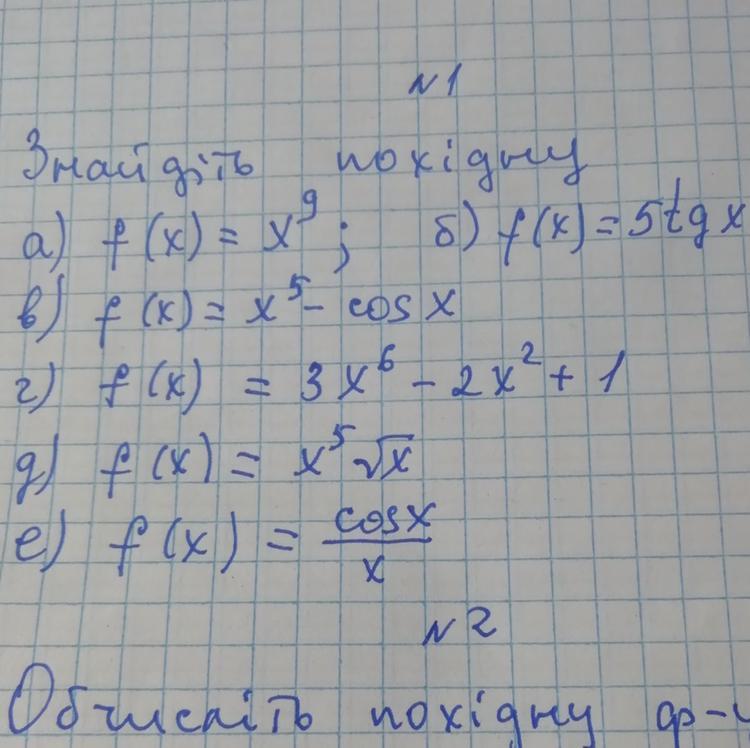 №1
Знайдіть похідну
а) f(x) = x⁹; б) f(x) = 5tg x
в) f(x) = x⁵ - cos x
г) f(x) = 3x⁶ - 2x² + 1
д) f(x) = x⁵√x
е) f(x) = cosx/x
№2
Обчисліть похідну ф-